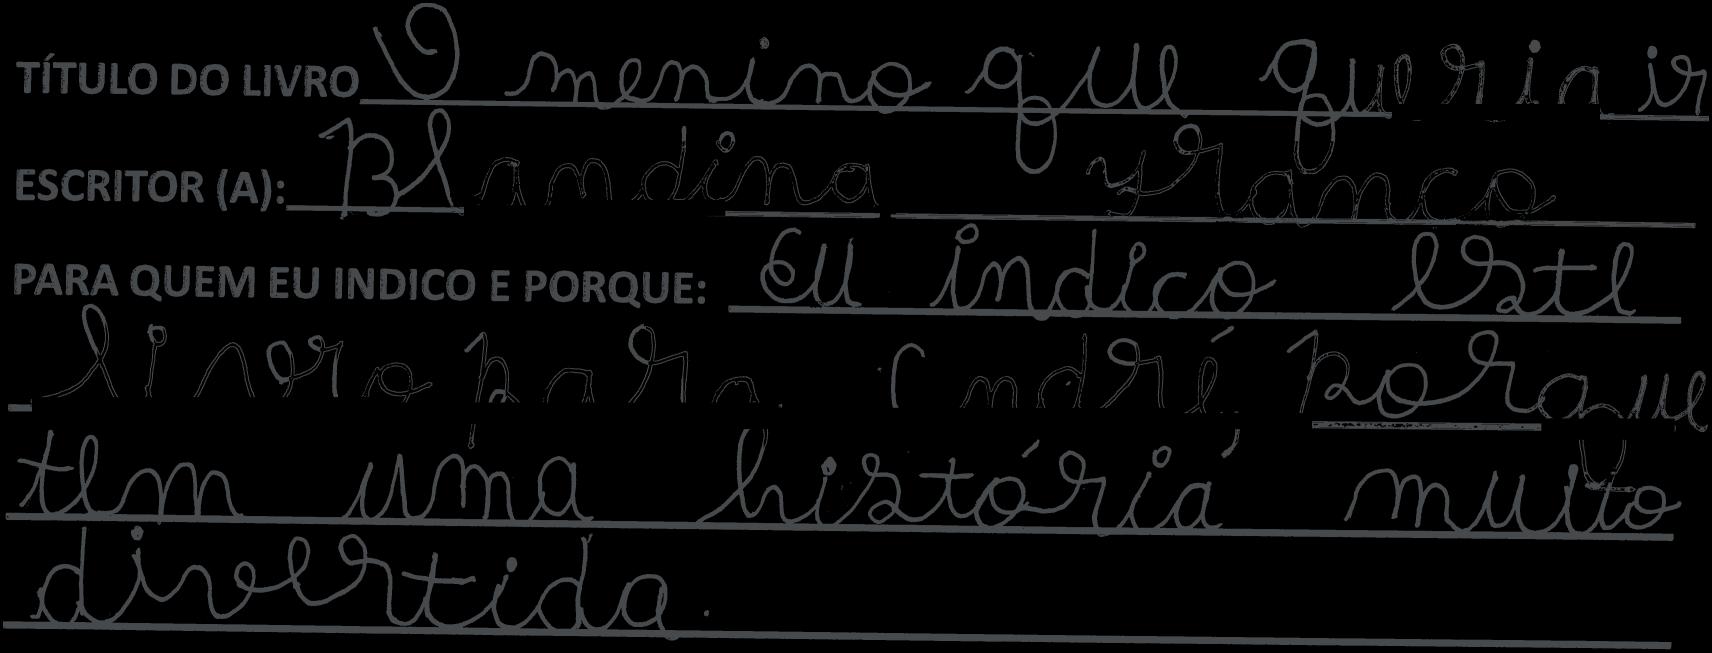 TÍTULO DO LIVRO O menino que queria ir
ESCRITOR (A): Blandina Franco
PARA QUEM EU INDICO E PORQUE: Eu indico este
livro para André porque
tem uma história muito
divertida.